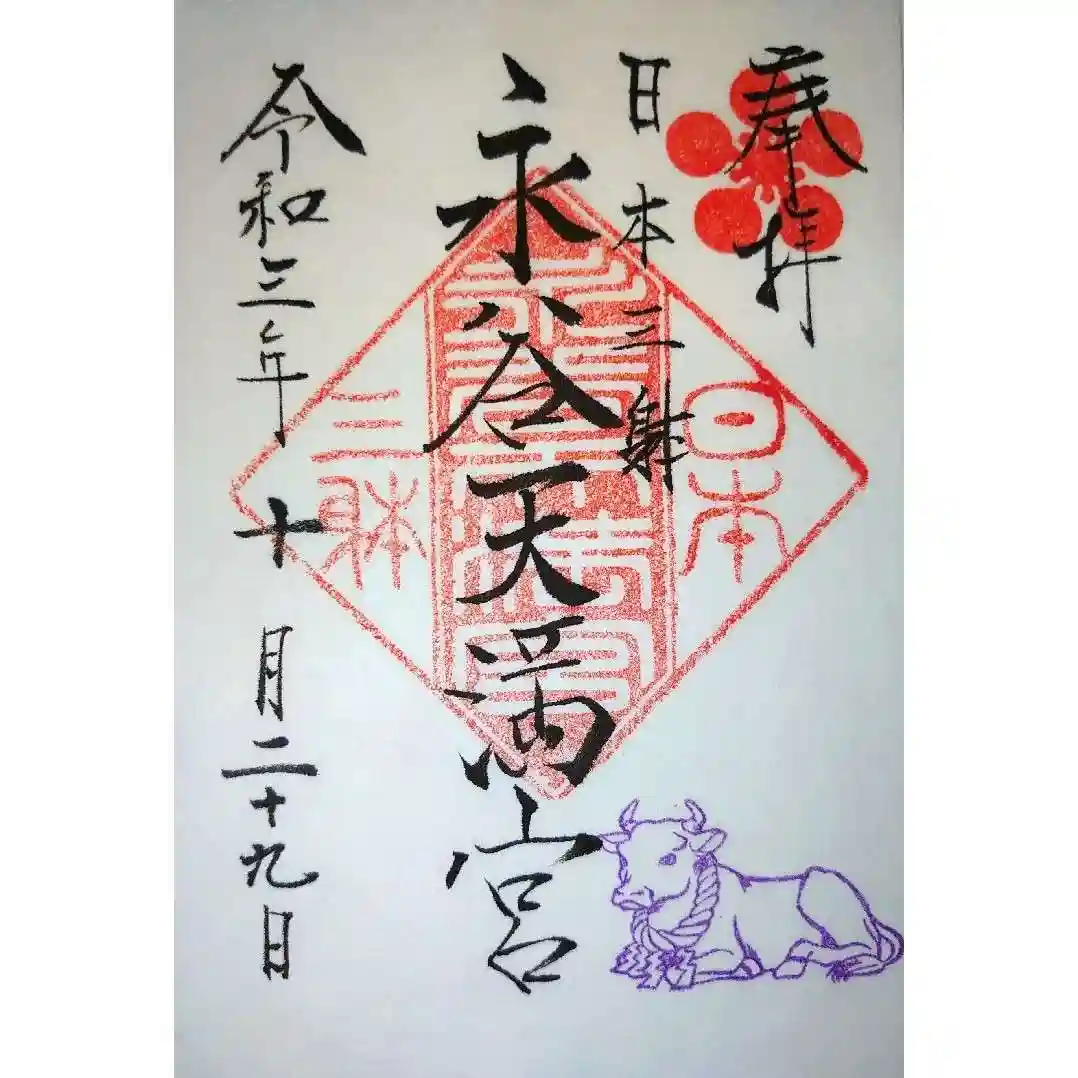 奉拝
日本三躰
永谷天満宮
令和三年十月二十九日
日本
永谷天満宮
三躰